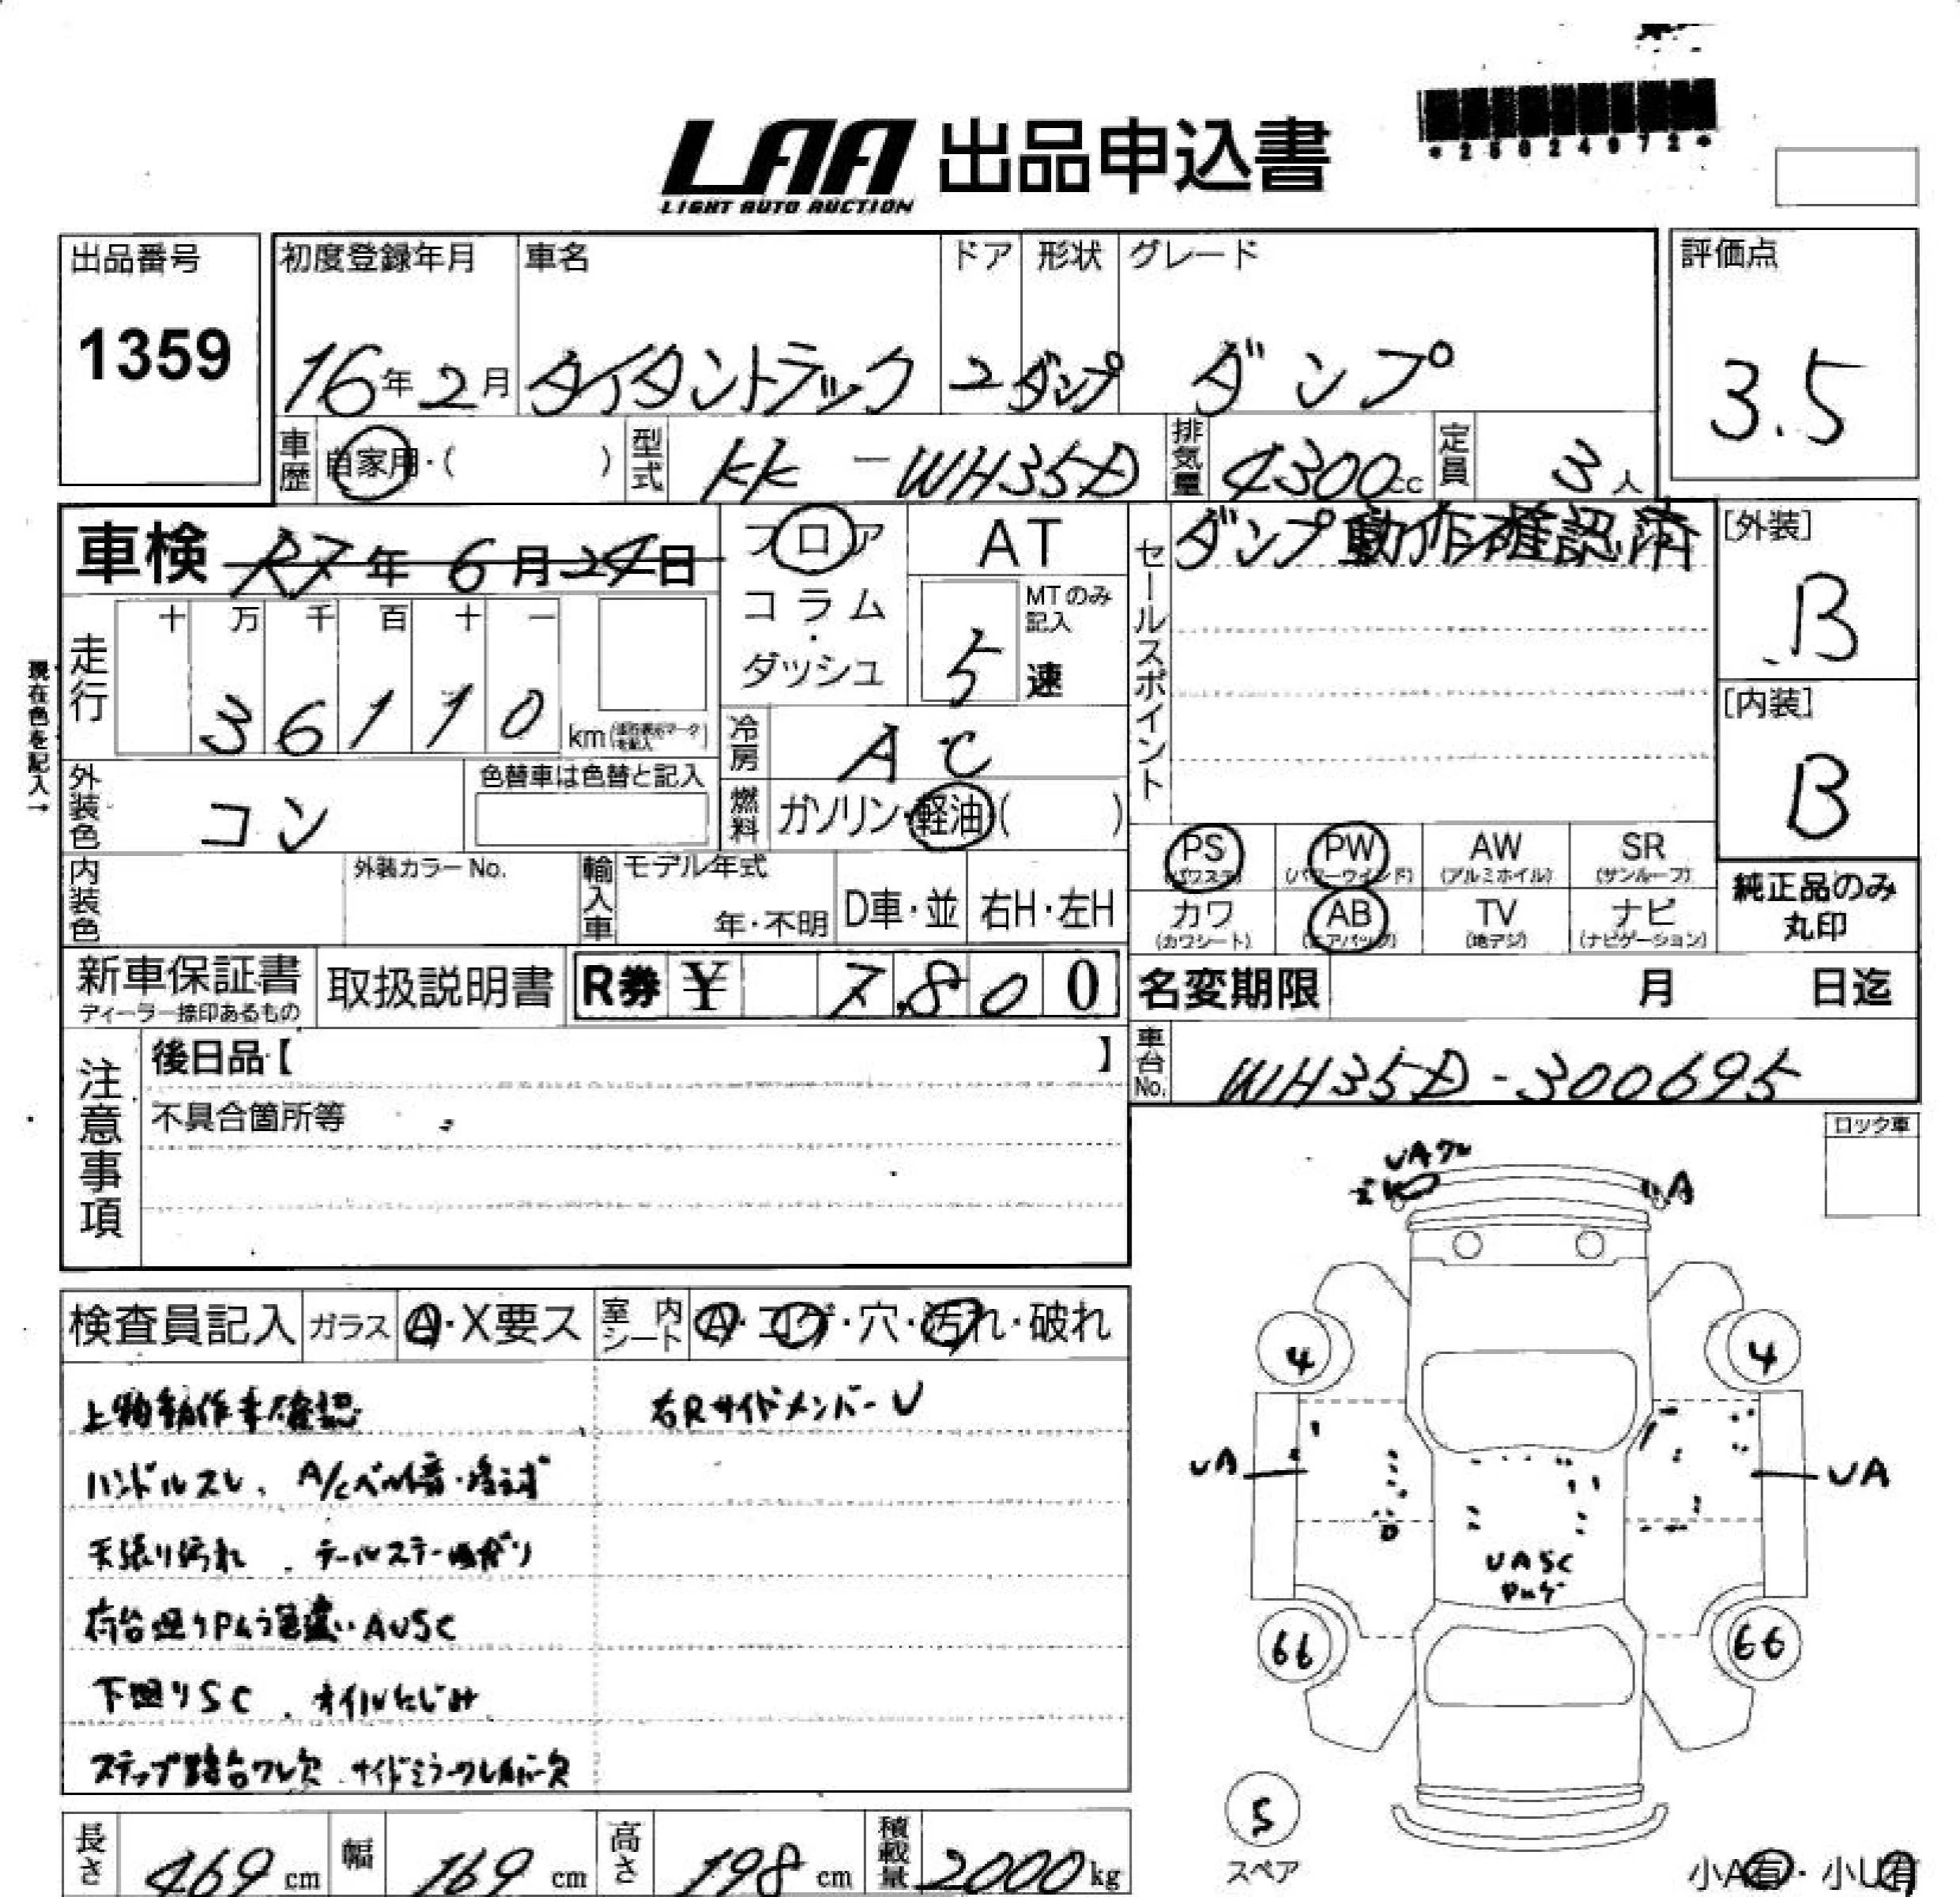 LAA 出品申込書
LIGHT AUTO AUCTION
出品番号 初度登録年月 車名 ドア 形状 グレード 評価点
1359 16年2月 タイタントラック 2 ダンプ ダンプ 3.5
車歴 自家用・( ) 型式 KK-WH35D 排気量 4300cc 定員 3人
車検 R7年6月24日 フロア AT セールスポイント ダンプ動作確認済 [外装]
コラム・ MTのみ記入 B
ダッシュ 5速
走行 十 万 千 百 十 一
36110 km
現在色を記入→
[内装]
B
冷房 AC
外装色 コン 色替車は色替と記入 燃料 ガソリン・軽油( )
PS (パワステ) PW (パワーウインド) AW (アルミホイル) SR (サンルーフ)
内装色 外装カラーNo. 輸入車 モデル年式 年・不明 D車・並 右H・左H
カワ (カワシート) AB (エアバッグ) TV (地デジ) ナビ (ナビゲーション)
純正品のみ
丸印
新車保証書 取扱説明書 R券 ¥ 7,800 名変期限 月 日迄
ディーラー捺印あるもの
注意事項 後日品【 】 車台No. WH35D-300695
不具合箇所等
ロック車
UAワレ
A
検査員記入 ガラス A・X要ス 室内シート A・コゲ・穴・汚れ・破れ
4 4
上物動作未確認 右RサイドメンバーU
ハンドルスレ、A/Cベルト音・冷えず
UA UA
天張り汚れ、テールステー曲がり
UASC
荷台廻りPムラ色違い AUSC
66 66
下廻りSC、オイルにじみ
ステップ踏台ワレ欠、サイドミラーワレカバー欠
5
スペア
長さ 469cm 幅 169cm 高さ 198cm 積載量 2000kg
小A有・小U有